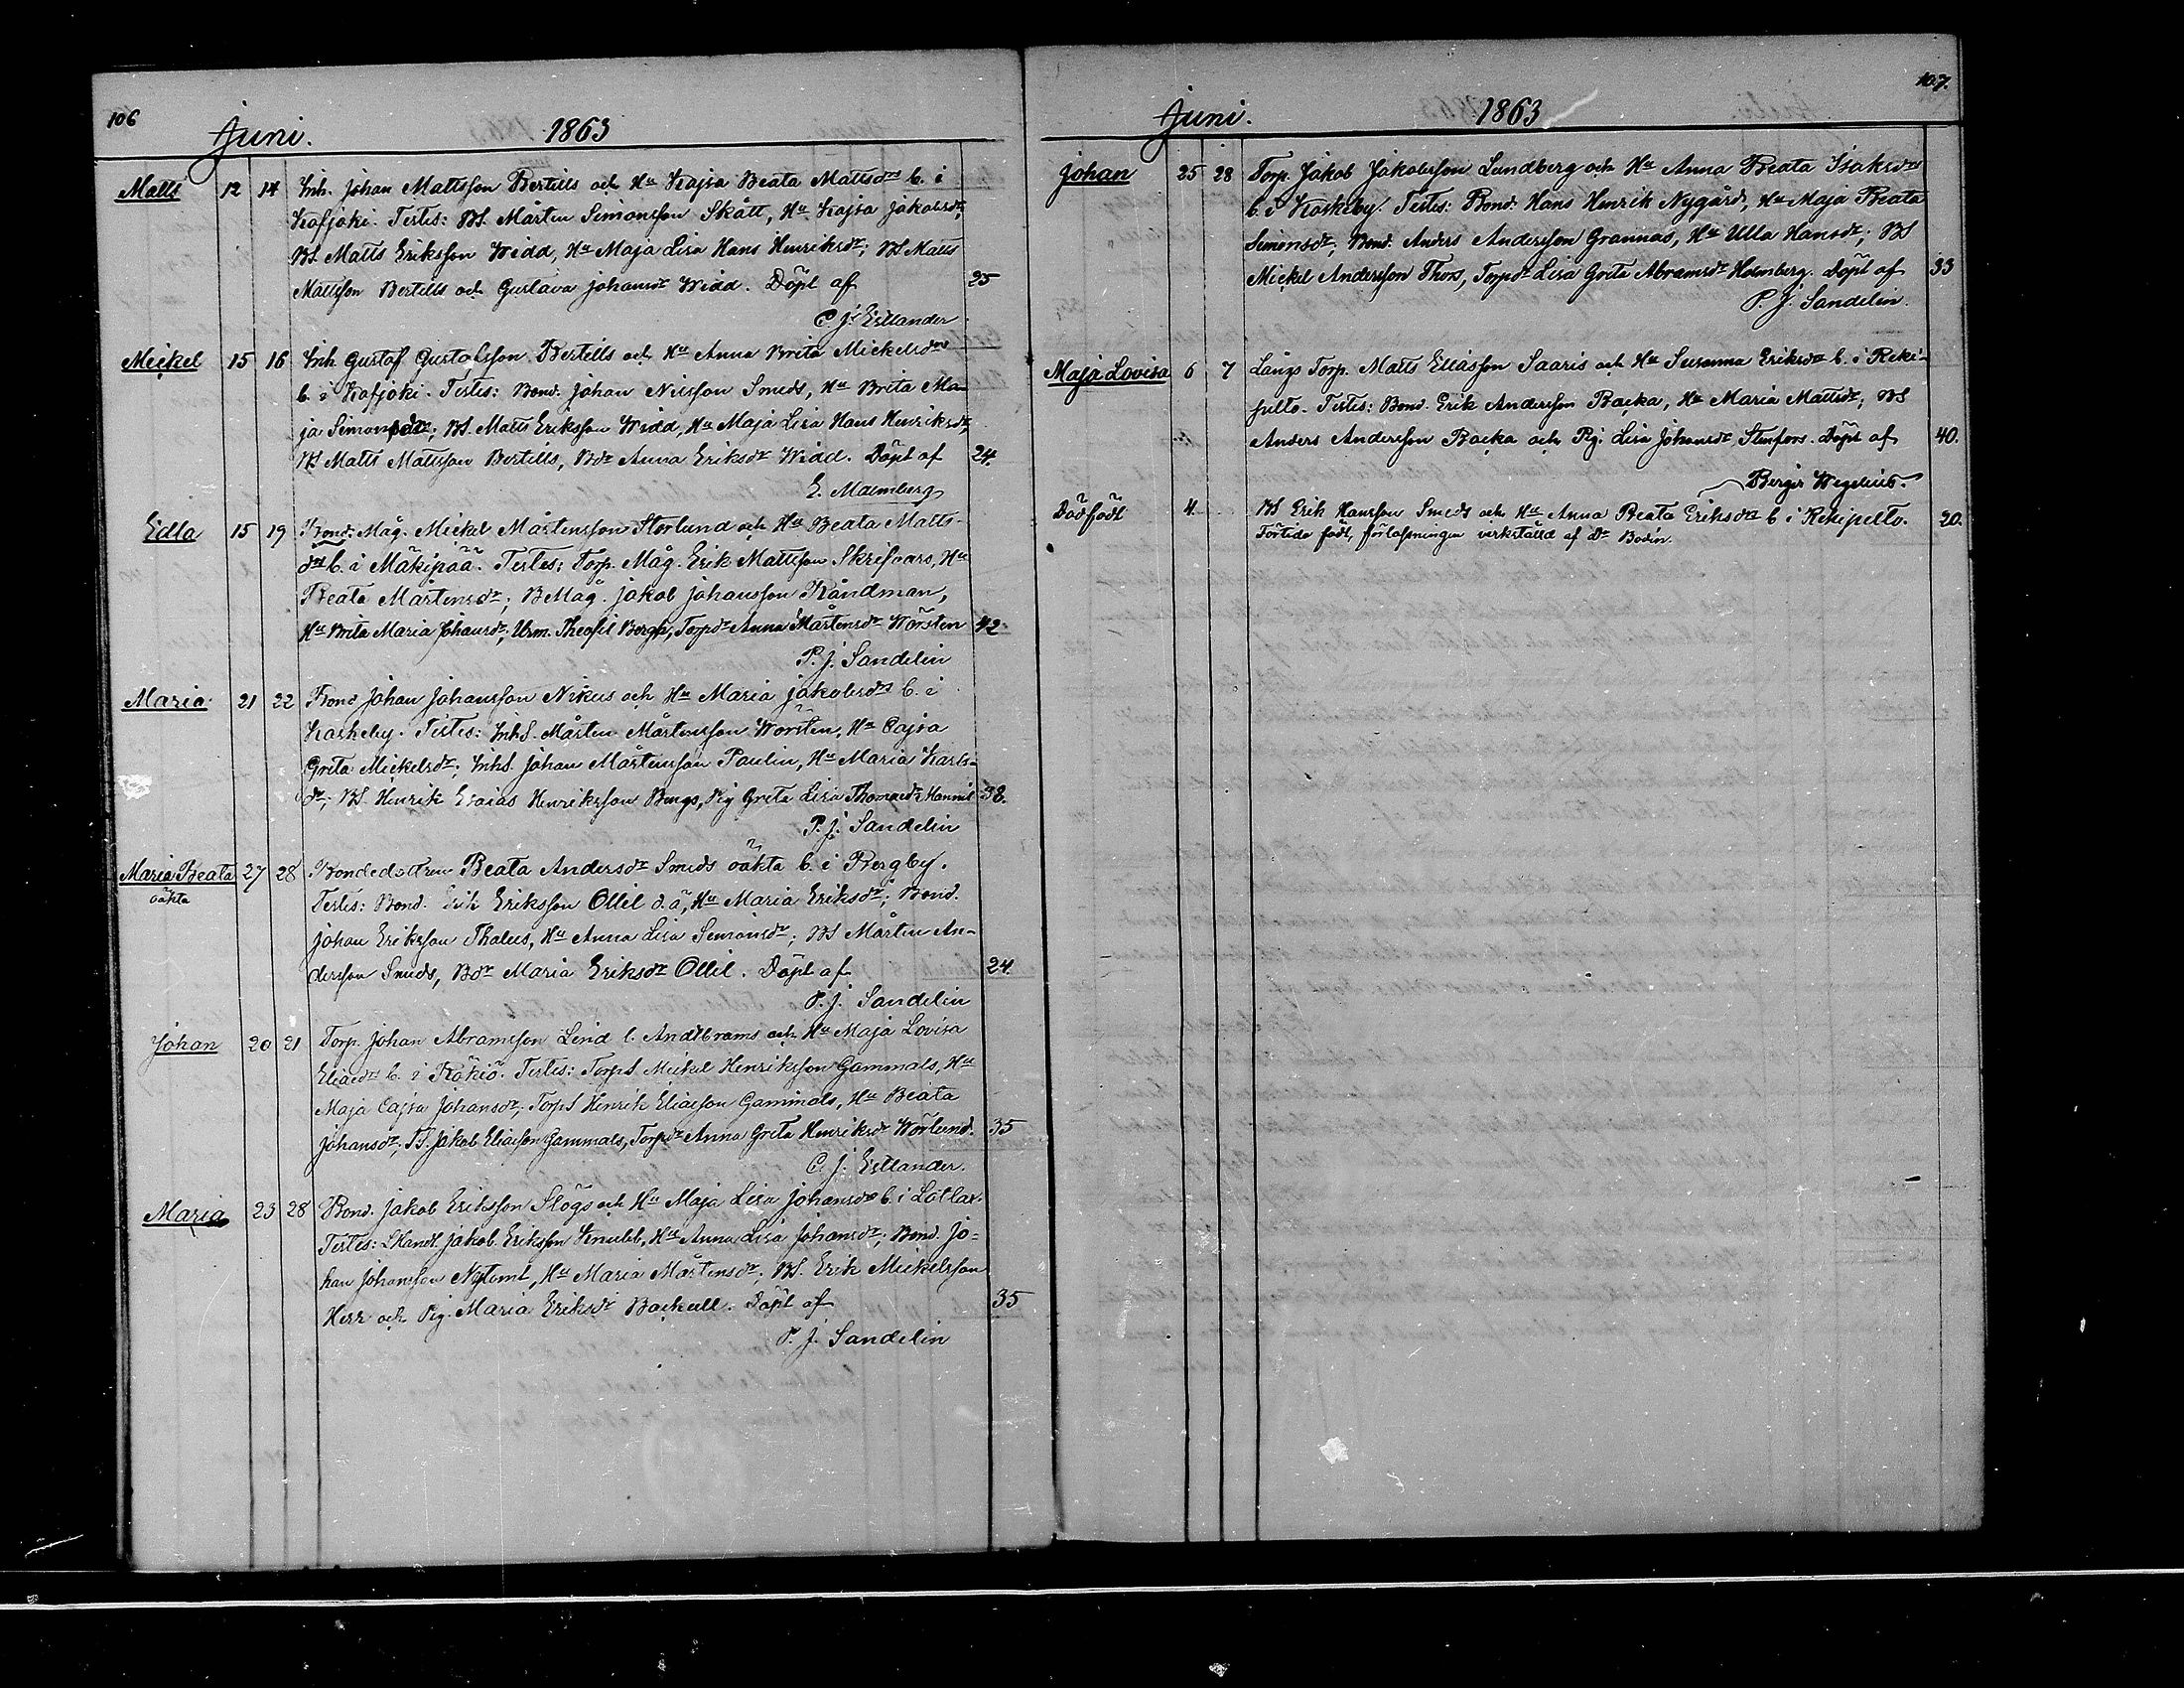 106
Juni. 1863
Matts 12 14 Inh. Johan Mattsson Bertills och Hu Kajsa Beata Mattsdr b. i
Kafjoki. Testes: BS. Mårten Simonsson Skått, Hu Kajsa Jakobsdr;
BS. Matts Eriksson Widd, Hu Maja Lisa Hans Henriksdr; BS Matts
Mattsson Bertills och Gustava Johansdr Widd. Döpt af 25
C. J. Estlander
Mickel 15 16 Inh. Gustaf Gustafsson Bertills och Hu Anna Brita Mickelsdr
b. i Kafjoki. Testes: Bond. Johan Nilsson Smeds, Hu Brita Ma
ja Simonsdr; BS. Matts Eriksson Widd, Hu Maja Lisa Hans Henriksdr;
BS Matts Mattsson Bertills, Bdr Anna Eriksdr Widd. Döpt af 24.
E. Malmberg
Edla 15 19 Bond. Måg. Mickel Mårtensson Storlund och Hu Beata Matts-
dr b. i Mäkipää. Testes: Torp. Måg. Erik Mattsson Skrifvars, Hu
Beata Mårtensdr; BMåg. Jakob Johansson Råndman,
Hu Brita Maria Johansdr; Urm. Theofil Bergh, Torpdr Anna Mårtensdr Wörsten 42
P. J. Sandelin
Maria 21 22 Bond Johan Johansson Nikus och Hu Maria Jakobsdr b. i
Kaskeby. Testes: InhS. Mårten Mårtensson Wörsten, Hu Cajsa
Greta Mickelsdr; InhS. Johan Mårtensson Paulin, Hu Maria Karls-
dr; BS. Henrik Esaias Henriksson Bengs, Pig Greta Lisa Thomasdr Mannil 38.
P. J. Sandelin
Maria Beata 27 28 Bondedottren Beata Andersdr Smeds oäkta b. i Bergby.
oäkta
Testes: Bond. Erik Eriksson Ollil d.ä, Hu Maria Eriksdr; Bond.
Johan Eriksson Thalus, Hu Anna Lisa Simonsdr; BS Mårten An-
dersson Smeds, Bdr Maria Eriksdr Ollil. Döpt af 24.
P. J. Sandelin
Johan 20 21 Torp. Johan Abramsson Lind l. Andtbrams och Hu Maja Lovisa
Eliædr b. i Rökiö. Testes: TorpS Mickel Henriksson Gammals, Hu
Maja Cajsa Johansdr; TorpS Henrik Eliæson Gammals, Hu Beata
Johansdr; TS. Jakob Eliæson Gammals, Torpdr Anna Greta Henriksdr Wörlund. 35
C. J. Estlander.
Maria 23 28 Bond. Jakob Eriksson Slögs och Hu Maja Lisa Johansdr b. i Lotlax.
Testes: LHandl. Jakob Eriksson Knubb, Hu Anna Lisa Johansdr; Bond. Jo-
han Johansson Nytomt, Hu Maria Mårtensdr; BS. Erik Mickelsson
Herr och Pig. Maria Eriksdr Backull. Döpt af 35
P. J. Sandelin
107.
Juni. 1863
Johan 25 28 Torp. Jakob Jakobsson Lundberg och Hu Anna Beata Isaksdr
b. i Kaskeby. Testes: Bond. Hans Henrik Nygård, Hu Maja Beata
Simonsdr; Bond. Anders Andersson Grannas, Hu Ulla Hansdr; BS
Mickel Andersson Thors, Torpdr Lisa Greta Abramsdr Holmberg. Döpt af 33
P. J. Sandelin.
Maja Lovisa 6 7 Långs Torp. Matts Eliasson Saaris och Hu Susanna Eriksdr b. i Reki-
pelto. Testes: Bond. Erik Andersson Backa, Hu Maria Mattsdr; BS
Anders Andersson Backa och Pig. Lisa Johansdr Stenfors. Döpt af 40.
Birger Wegelius.
Dödfödt 4. BS Erik Hansson Smeds och Hu Anna Beata Eriksdr b i Rekipelto. 20.
Förtida födt, förlossningen verkställd af Dr Bodin.